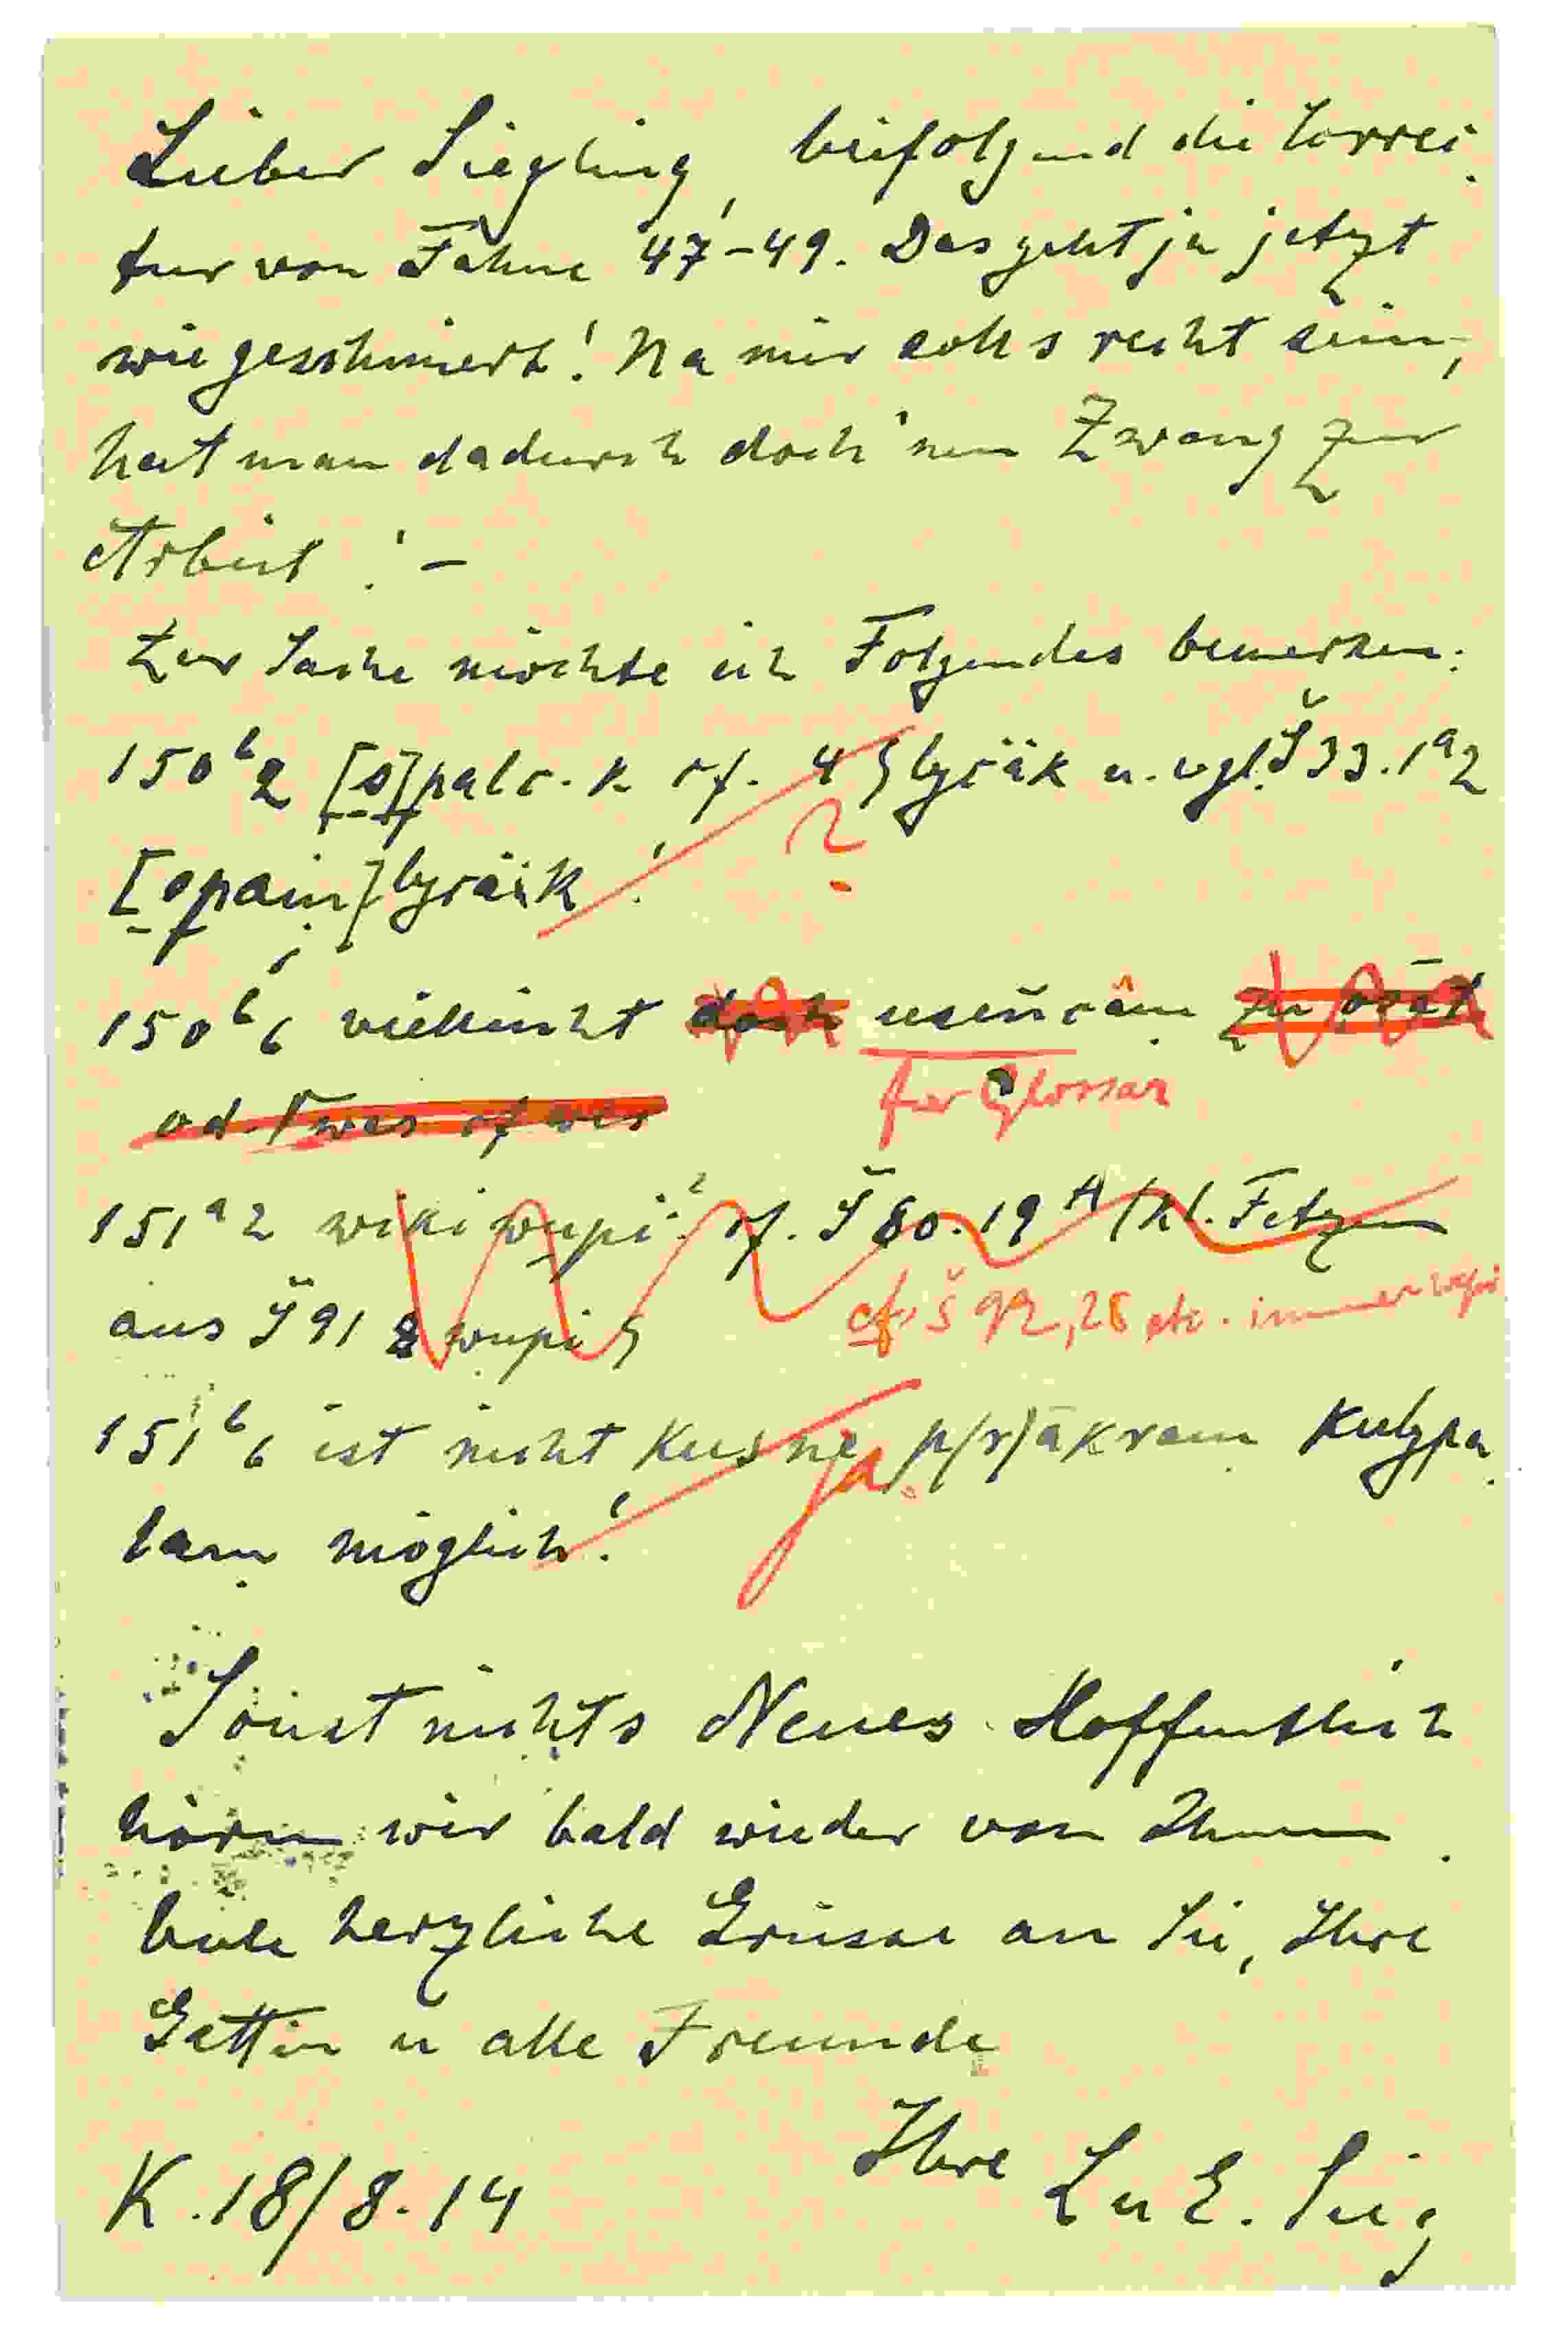 Lieber Siegling, beifolgend die Correc
tur von Fahne 47–49. Das geht ja jetzt
wie geschmiert! Na mir solls recht sein,
hat man dadurch doch 'nen Zwang zur
Arbeit! –
Zur Sache möchte ich Folgendes bemerken:
150ᵇ2 [s]palc. k cf. 4 lycäk u. vgl. Š 33. 1ᵃ2
lycäk!
?
150ᵇ6 vielleicht doch zu
für Glossar
od. cf
151ᵃ2 wiki wupi? cf. Š 80. 19 (kl. Fetzen
aus Š 91 wupi
cf. Š 92, 25 etc. immer wupi
151ᵇ6 ist nicht kusne p(r)ākram kulypa
lam möglich!
ja
Sonst nichts Neues. Hoffentlich
hören wir bald wieder von Ihnen.
Viele herzliche Grüsse an Sie, Ihre
Gattin u alle Freunde
Ihre L u E. Sieg
K. 18/8. 14